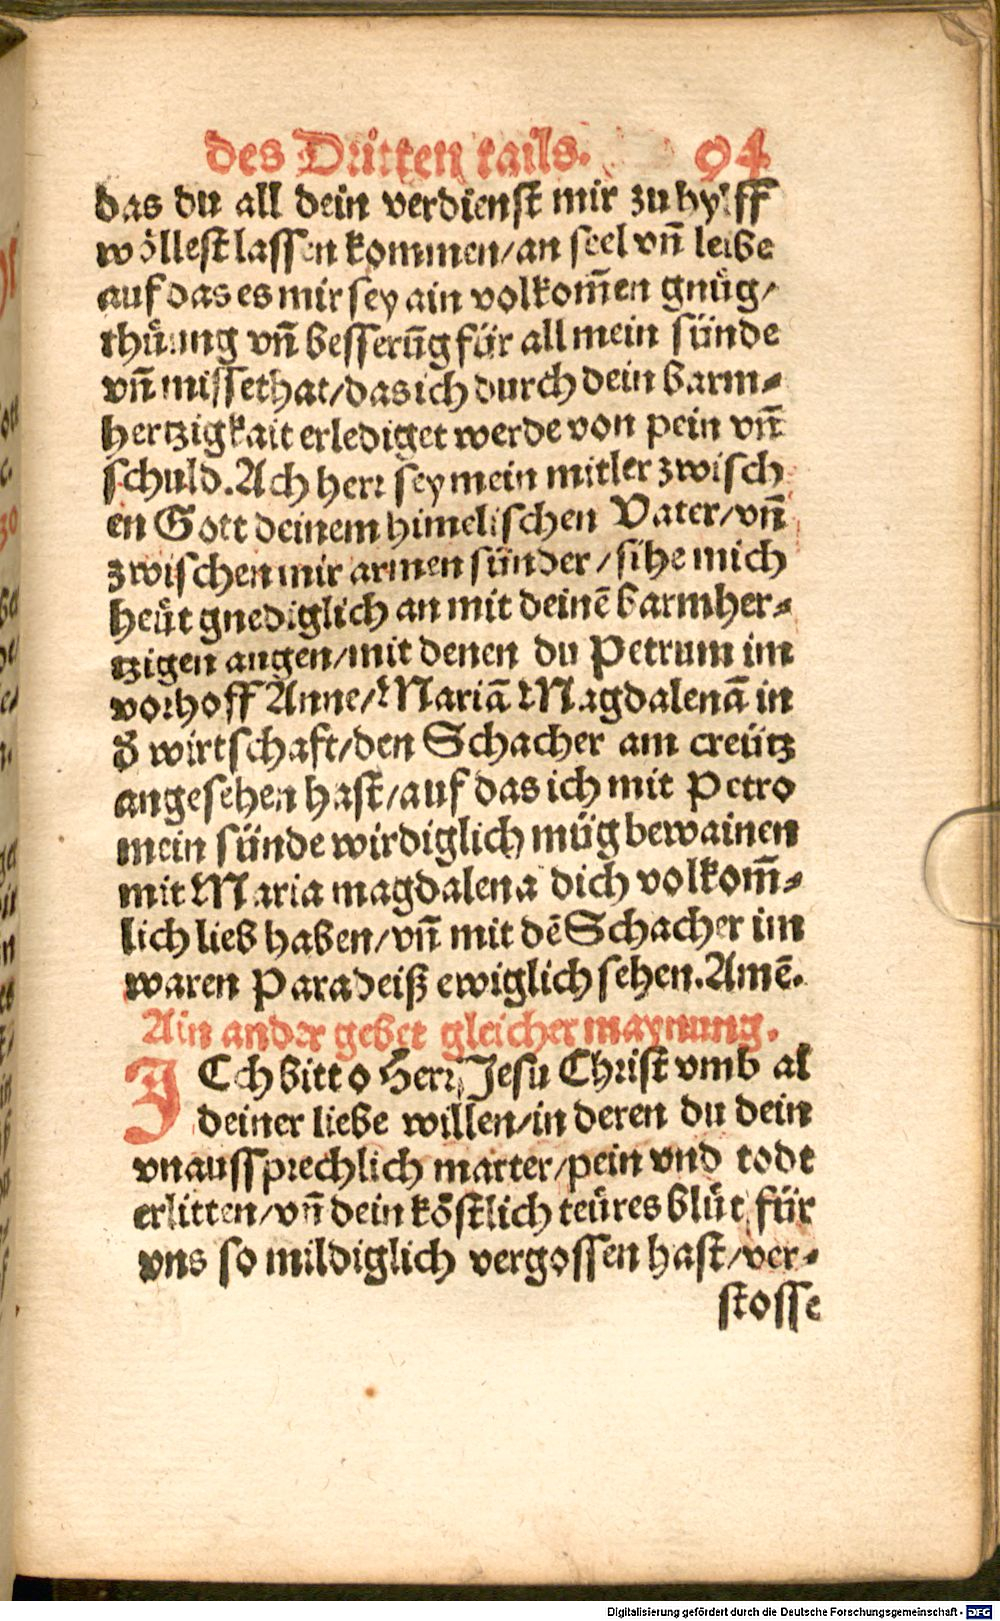 des Dritten tails. 94
das du all dein verdienst mir zu hylff
wöllest lassen kommen/an seel vn̄ leibe
auf das es mir sey ain volkom̄en gnüg/
thüung vn̄ besserūg für all mein sünde
vn̄ missethat/das ich durch dein barm⸗
hertzigkait erlediget werde von pein vn̄
schuld. Ach herr sey mein mitler zwisch
en Gott deinem himelischen Vater/vn̄
zwischen mir armen sünder/sihe mich
heüt gnediglich an mit deinē barmher⸗
tzigen augen/mit denen du Petrum im
vorhoff Anne/Mariā Magdalenā in
ď wirtschaft/den Schacher am creütz
angesehen hast/auf das ich mit Petro
mein sünde wirdiglich müg bewainen
mit Maria magdalena dich volkom̄⸗
lich lieb haben/vn̄ mit dē Schacher im
waren Paradeiß ewiglich sehen. Amē.
Ain ander gebet gleicher maynung.
ICch bitt o Herr Jesu Christ vmb al
deiner liebe willen/in deren du dein
vnaussprechlich marter/pein vnd todt
erlitten/vn̄ dein köstlich teüres blüt für
vns so mildiglich vergossen hast/ver⸗
stosse
Digitalisierung gefördert durch die Deutsche Forschungsgemeinschaft - DFG